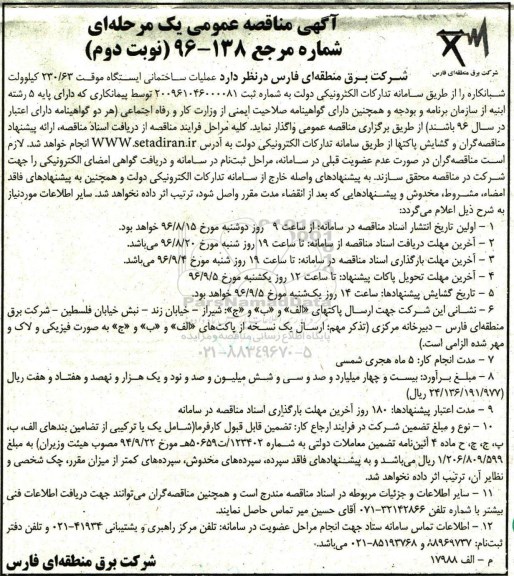 آگهی مناقصه عمومی یک مرحله‌ای
شماره مرجع ۱۳۸-۹۶ (نوبت دوم)
شرکت برق منطقه‌ای فارس
شرکت برق منطقه‌ای فارس درنظر دارد عملیات ساختمانی ایستگاه موقت ۲۳۰/۶۳ کیلوولت
شبانکاره را از طریق سامانه تدارکات الکترونیکی دولت به شماره ثبت ۲۰۰۹۶۱۰۴۶۰۰۰۰۸۱ توسط پیمانکاری که دارای پایه ۵ رشته
ابنیه از سازمان برنامه و بودجه و همچنین دارای گواهینامه صلاحیت ایمنی از وزارت کار و رفاه اجتماعی (هر دو گواهینامه دارای اعتبار
در سال ۹۶ باشند) از طریق برگزاری مناقصه عمومی واگذار نماید. کلیه مراحل فرایند مناقصه از دریافت اسناد مناقصه، ارائه پیشنهاد
مناقصه‌گران و گشایش پاکتها از طریق سامانه تدارکات الکترونیکی دولت به آدرس WWW.setadiran.ir انجام خواهد شد. لازم
است مناقصه‌گران در صورت عدم عضویت قبلی در سامانه، مراحل ثبت‌نام در سامانه و دریافت گواهی امضای الکترونیکی را جهت
شرکت در مناقصه محقق سازند. به پیشنهادهای واصله خارج از سامانه تدارکات الکترونیکی دولت و همچنین به پیشنهادهای فاقد
امضاء، مشروط، مخدوش و پیشنهادهایی که بعد از انقضاء مدت مقرر واصل شود، ترتیب اثر داده نخواهد شد. سایر اطلاعات موردنیاز
به شرح ذیل اعلام می‌گردد:
۱ - اولین تاریخ انتشار اسناد مناقصه در سامانه: از ساعت ۹ روز دوشنبه مورخ ۹۶/۸/۱۵ خواهد بود.
۲ - آخرین مهلت دریافت اسناد مناقصه از سامانه: تا ساعت ۱۹ روز شنبه مورخ ۹۶/۸/۲۰ می‌باشد.
۳ - آخرین مهلت بارگذاری اسناد مناقصه در سامانه: تا ساعت ۱۹ روز شنبه مورخ ۹۶/۹/۴ می‌باشد.
۴ - آخرین مهلت تحویل پاکات پیشنهاد: تا ساعت ۱۲ روز یکشنبه مورخ ۹۶/۹/۵
۵ - تاریخ گشایش پیشنهادها: ساعت ۱۴ روز یکشنبه مورخ ۹۶/۹/۵ خواهد بود.
۶ - نشانی این شرکت جهت ارسال پاکتهای «الف» و «ب» و «ج»: شیراز - خیابان زند - نبش خیابان فلسطین - شرکت برق
منطقه‌ای فارس - دبیرخانه مرکزی (تذکر مهم: ارسال یک نسخه از پاکت‌های «الف» و «ب» و «ج» به صورت فیزیکی و لاک و
مهر شده الزامی است.)
۷ - مدت انجام کار: ۵ ماه هجری شمسی
۸ - مبلغ برآورد: بیست و چهار میلیارد و صد و سی و شش میلیون و صد و نود و یک هزار و نهصد و هفتاد و هفت ریال
(۲۴/۱۳۶/۱۹۱/۹۷۷ ریال)
۹ - مدت اعتبار پیشنهادها: ۱۸۰ روز آخرین مهلت بارگذاری اسناد مناقصه در سامانه
۱۰ - نوع و مبلغ تضمین شرکت در فرایند ارجاع کار: تضمین قابل قبول کارفرما(شامل یک یا ترکیبی از تضامین بندهای الف، ب،
پ، ج، چ، ح ماده ۴ آئین‌نامه تضمین معاملات دولتی به شماره ۱۲۳۴۰۲/ت۵۰۶۵۹هـ مورخ ۹۴/۹/۲۲ مصوب هیئت وزیران) به مبلغ
۱/۲۰۶/۸۰۹/۵۹۹ ریال می‌باشد و به پیشنهادهای فاقد سپرده، سپرده‌های مخدوش، سپرده‌های کمتر از میزان مقرر، چک شخصی و
نظایر آن، ترتیب اثر داده نخواهد شد.
۱۱ - سایر اطلاعات و جزئیات مربوطه در اسناد مناقصه مندرج است و همچنین مناقصه‌گران می‌توانند جهت دریافت اطلاعات فنی
بیشتر با شماره تلفن ۳۲۱۴۲۸۶۶-۰۷۱ آقای حسین میر تماس حاصل نمایند.
۱۲ - اطلاعات تماس سامانه ستاد جهت انجام مراحل عضویت در سامانه: تلفن مرکز راهبری و پشتیبانی ۴۱۹۳۴-۰۲۱ و تلفن دفتر
ثبت‌نام: ۸۸۹۶۹۷۳۷ و ۸۵۱۹۳۷۶۸-۰۲۱ می‌باشد.
م - الف ۱۷۹۸۸
شرکت برق منطقه‌ای فارس
ParsNamadData
پایگاه اطلاع رسانی مناقصه و مزایده
۰۲۱-۸۸۳۴۹۶۷۰-۵